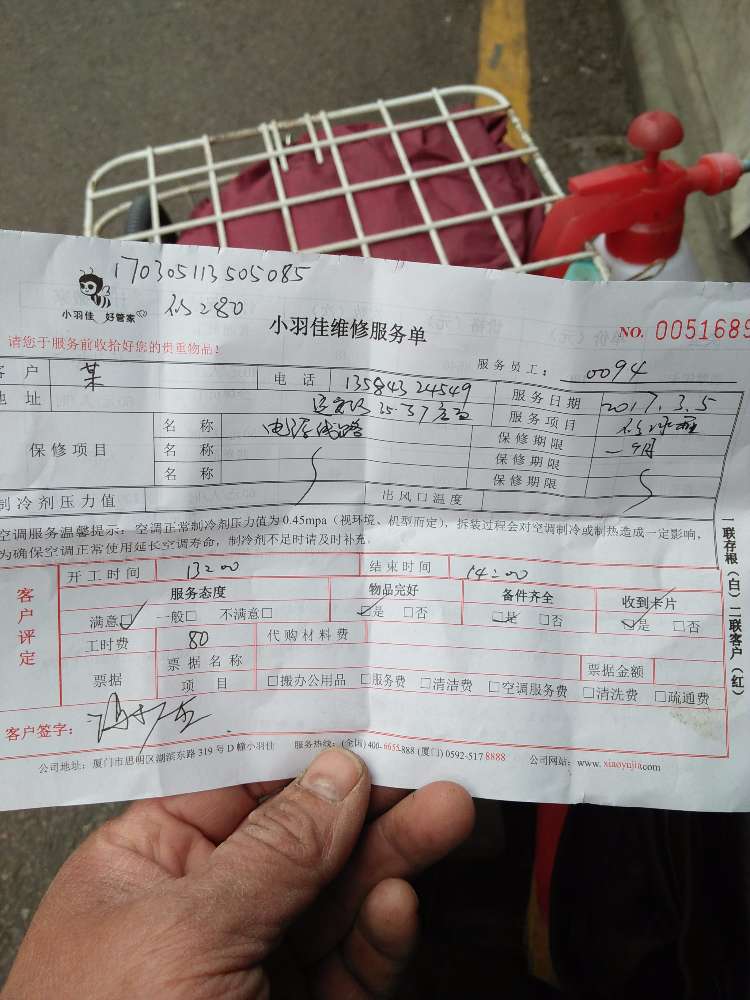 170305113505085
280
小羽佳 好管家
小羽佳维修服务单
NO. 0051689
请您于服务前收拾好您的贵重物品！
服务员工： 0094
客户 某 电话 13584324549 服务日期 2017.3.5
地址 35-37 服务项目
保修项目 名称 电源线路 保修期限 一个月
名称 保修期限
名称 保修期限
制冷剂压力值 出风口温度
空调服务温馨提示：空调正常制冷剂压力值为 0.45mpa（视环境、机型而定），拆装过程会对空调制冷或制热造成一定影响，
为确保空调正常使用延长空调寿命，制冷剂不足时请及时补充。
开工时间 13:00 结束时间 14:00
客户评定
服务态度 物品完好 备件齐全 收到卡片
满意☑ 一般□ 不满意□ ☑是 □否 □是 □否 ☑是 □否
工时费 80 代购材料费
票据 票据名称 票据金额
项目 □搬办公用品 □服务费 □清洁费 □空调服务费 □清洗费 □疏通费
客户签字：
公司地址：厦门市思明区湖滨东路 319 号 D 幢小羽佳 服务热线：(全国) 400-6655-888 (厦门) 0592-517 8888 公司网站：www.xiaoyujia.com
一联存根（白）二联客户（红）